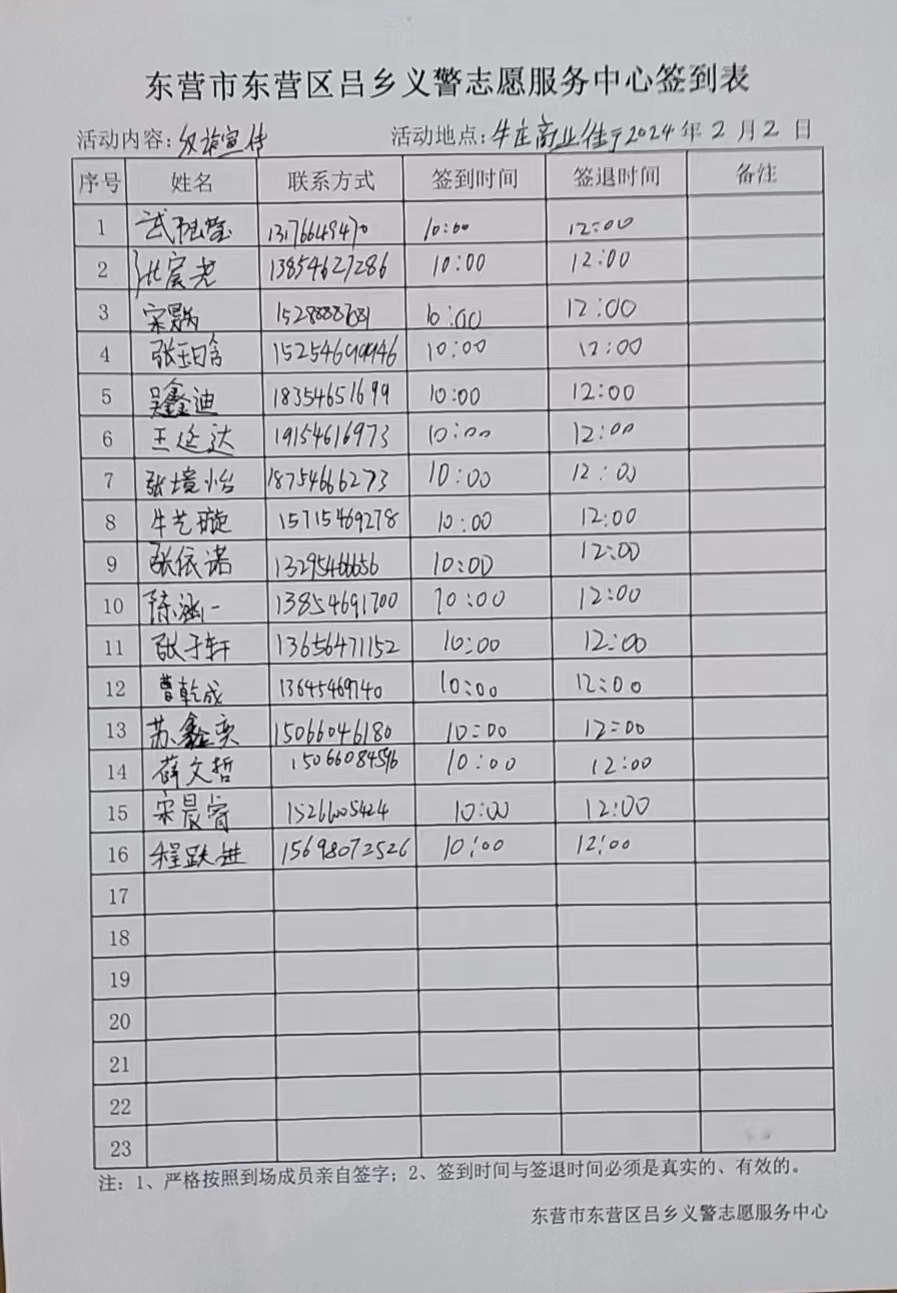 东营市东营区吕乡义警志愿服务中心签到表
活动内容：反诈宣传 活动地点：牛庄商业街 于2024年2月2日
序号 姓名 联系方式 签到时间 签退时间 备注
1 武 13176649470 10:00 12:00
2 13854627286 10:00 12:00
3 宋 10:00 12:00
4 张钰晗 15254699946 10:00 12:00
5 吴鑫迪 18354651699 10:00 12:00
6 王廷达 19154616973 10:00 12:00
7 张境怡 18754666273 10:00 12:00
8 牛艺璇 15715469278 10:00 12:00
9 张依诺 10:00 12:00
10 陈涵一 13854691700 10:00 12:00
11 张子轩 13656471152 10:00 12:00
12 曹乾成 13645469740 10:00 12:00
13 苏鑫奕 15066046180 10:00 12:00
14 薛文哲 15066084596 10:00 12:00
15 宋晨睿 10:00 12:00
16 程跃进 15698072526 10:00 12:00
17
18
19
20
21
22
23
注：1、严格按照到场成员亲自签字；2、签到时间与签退时间必须是真实的、有效的。
东营市东营区吕乡义警志愿服务中心